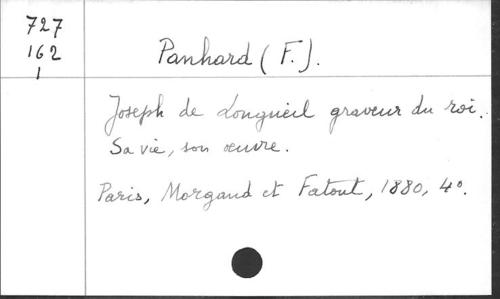 727
162
1
Panhard (F.).
Joseph de Longueil graveur du roi.
Sa vie, son œuvre.
Paris, Morgand et Fatout, 1880, 4º.